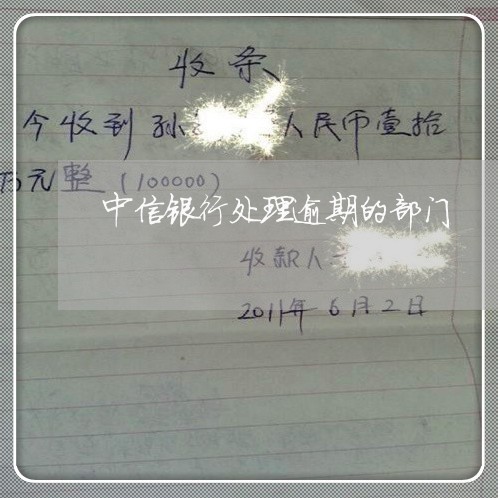 收条
今收到孙 人民币壹拾
万元整(100000)
中信银行处理逾期的部门
收款人
2011年6月2日